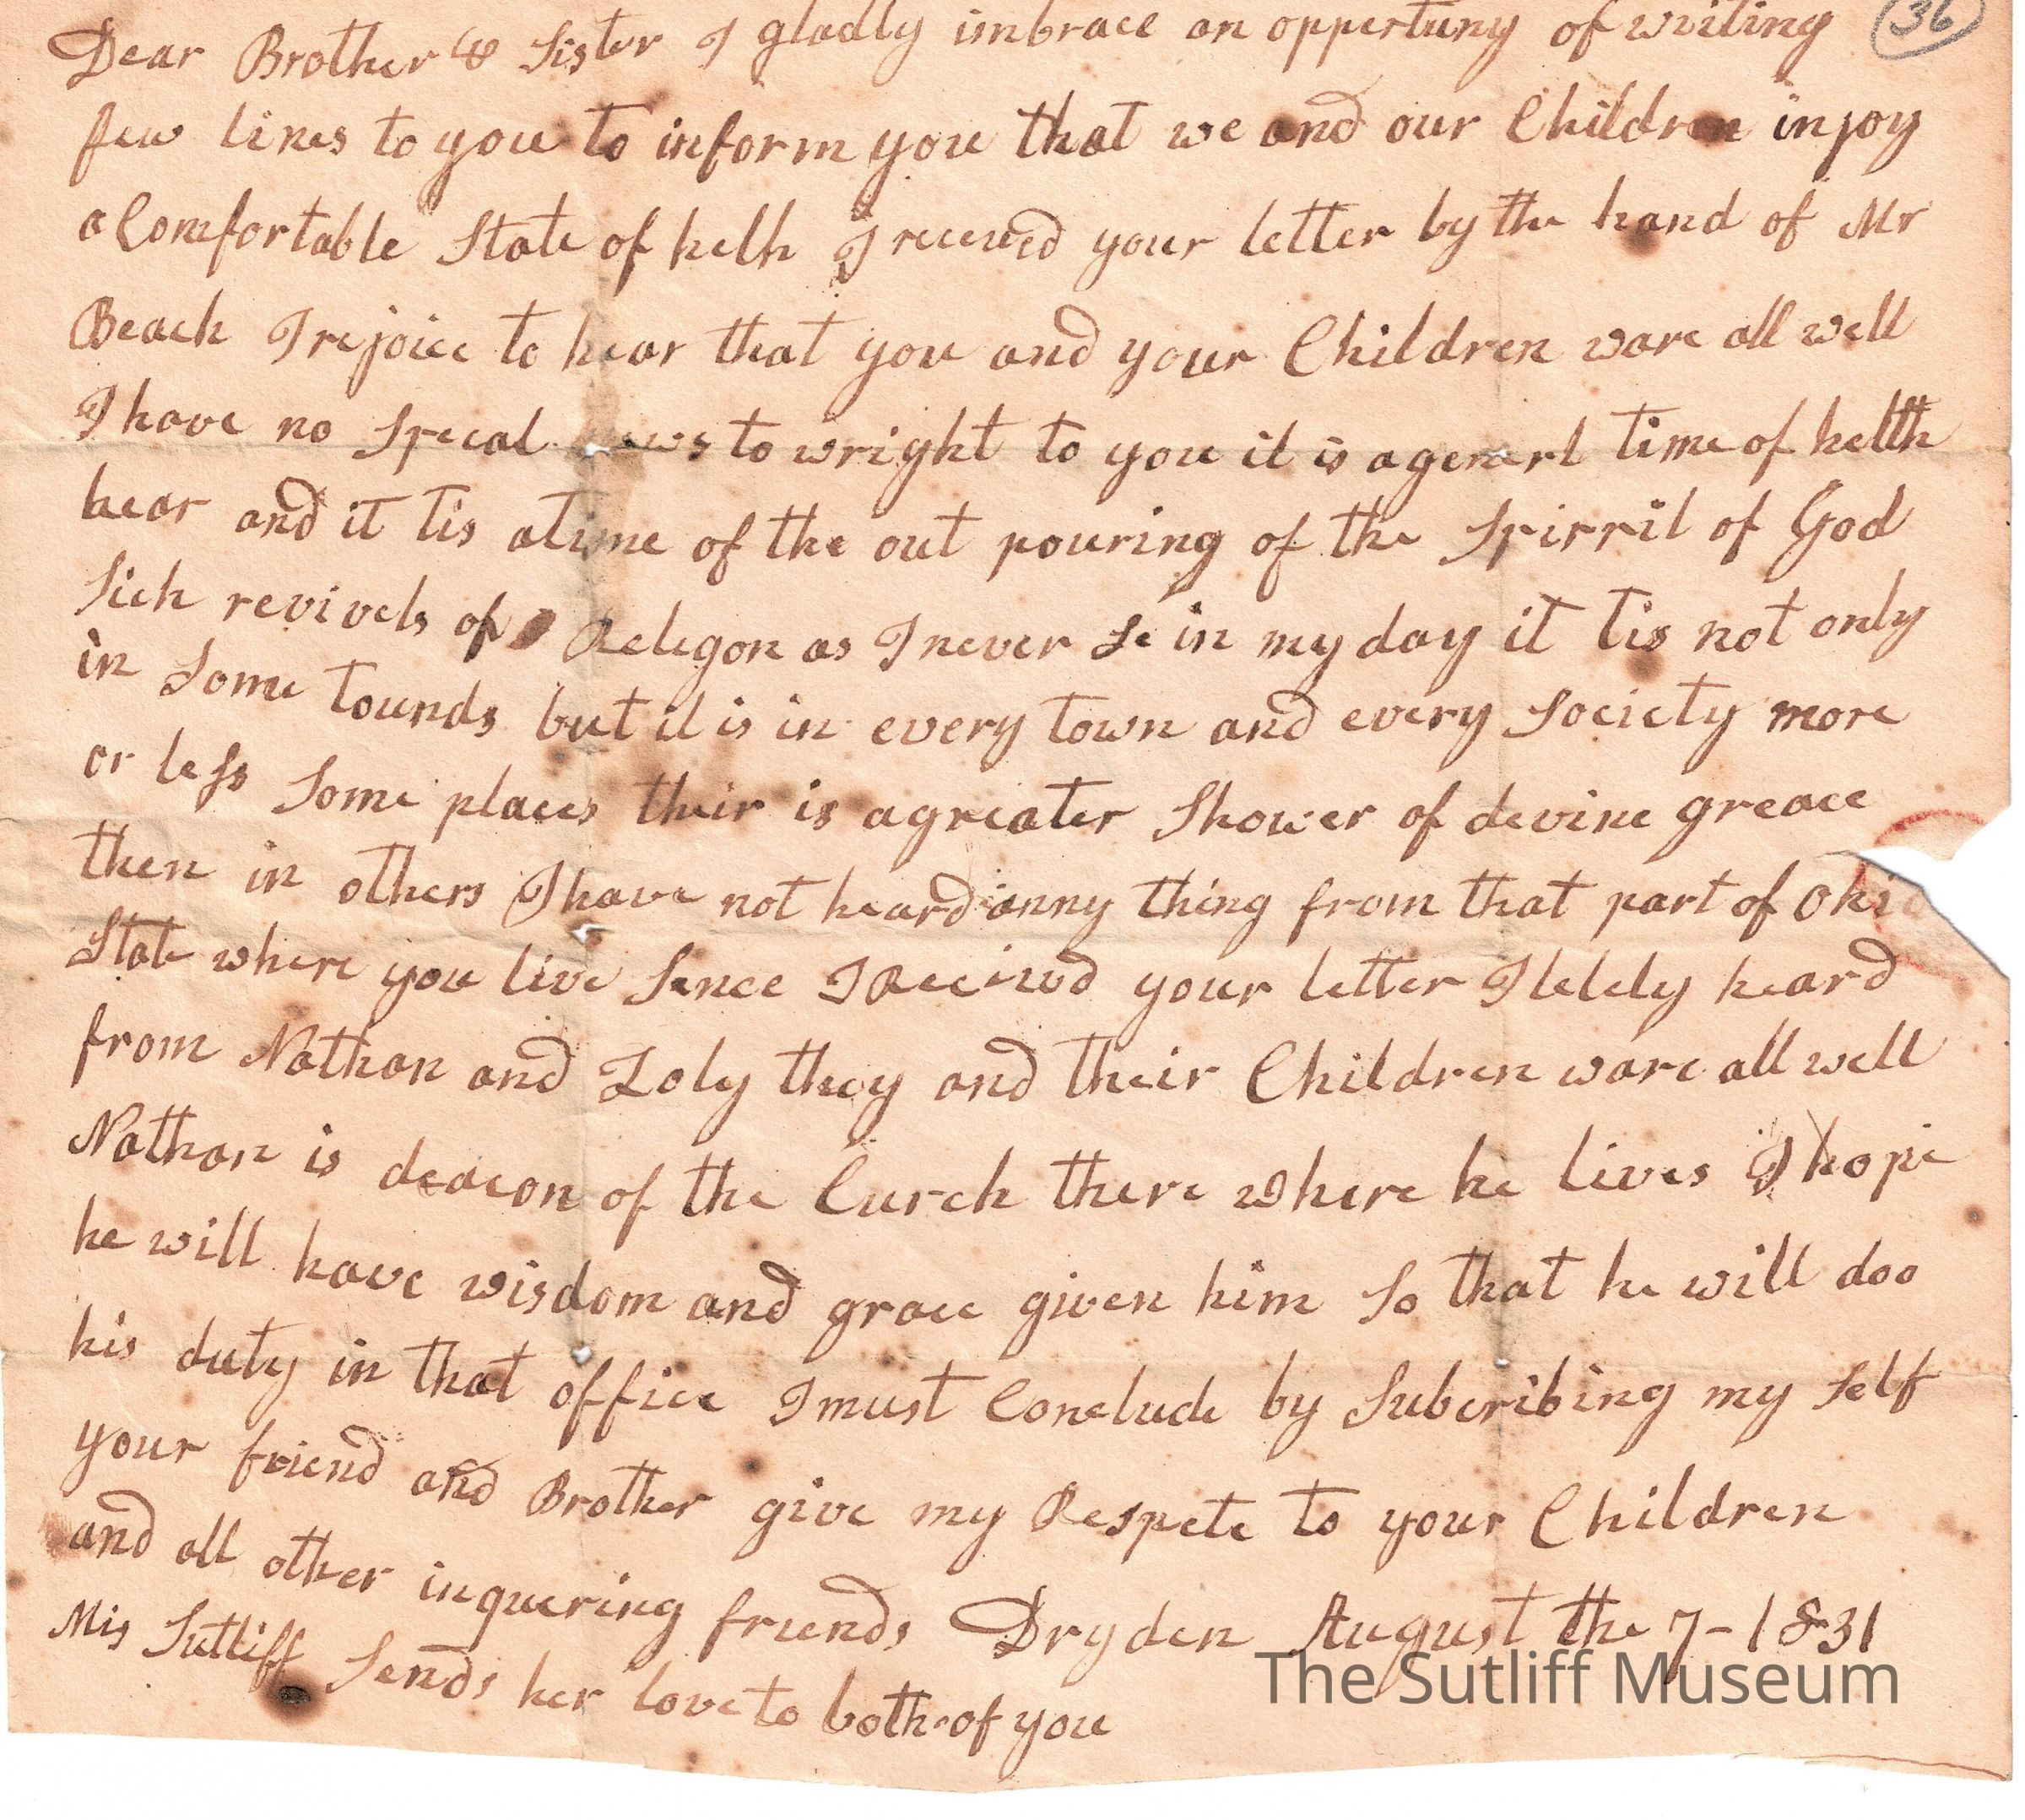 Dear Brother & Sister I gladly imbrace an oppertuny of writing
36
few lines to you to inform you that we and our Children injoy
a Comfortable State of helh I receved your letter by the hand of Mr
Beach I rejoice to hear that you and your Children ware all well
I have no Specal news to wright to you it is a generl time of helth
hear and it tis a time of the out pouring of the Spirril of God
Sich revivels of Relegon as I never Se in my day it tis not only
in Some tounds but it is in every town and every Society more
or less Some places their is a greater Shower of devine greace
then in others I have not heard anny thing from that part of Ohio
State where you live Sence I Receivd your letter I lelely heard
from Nathan and Loly they and their Children ware all well
Nathan is deacon of the Curch there where he lives I hope
he will have wisdom and grace given him So that he will doo
his duty in that office I must Conclude by Subcribing my Self
your friend and Brother give my Respete to your Children
and all other inquering friends Dryden August the 7-1831
Mis Sutliff Sends her love to both of you
The Sutliff Museum